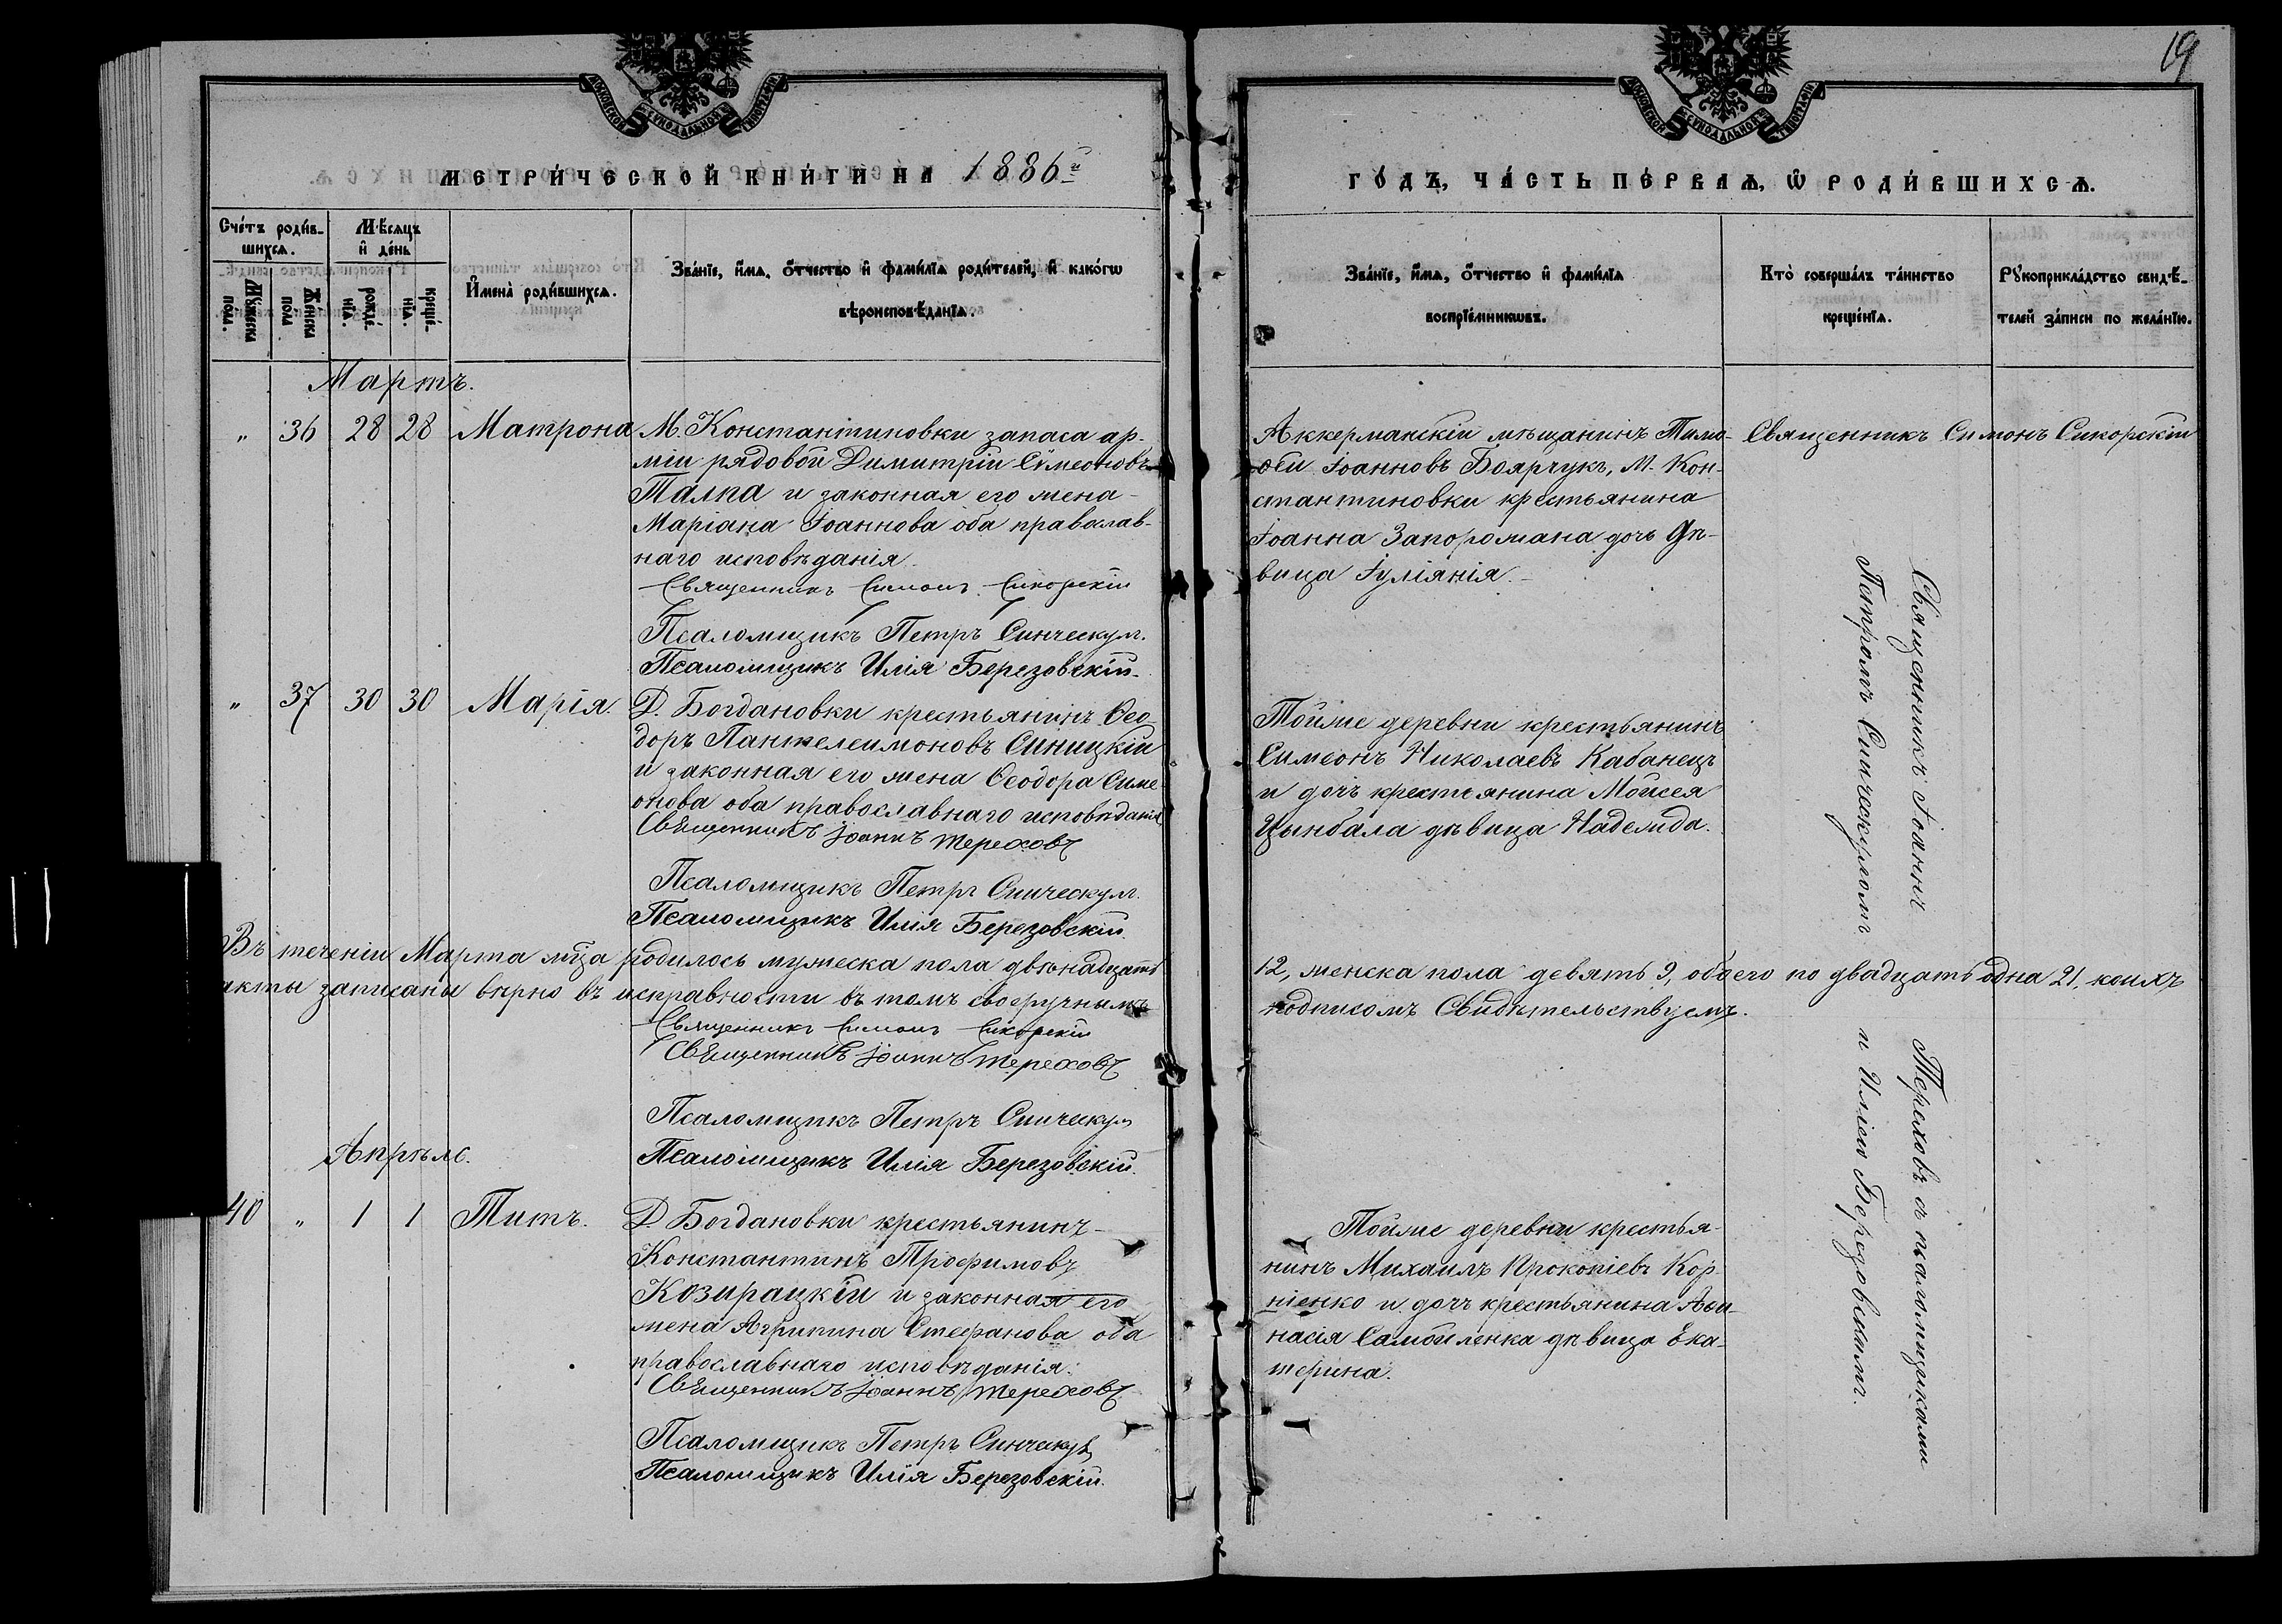 19
МОСКОВСКОЙ СѴНОДАЛЬНОЙ ТИПОГРАФІИ
МОСКОВСКОЙ СѴНОДАЛЬНОЙ ТИПОГРАФІИ
МЕТРИ́ЧЕСКОЙ КНИ́ГИ НА 1886й
ГО́ДЪ, ЧА́СТЬ ПЕ́РВАѦ, Ѿ РОДИ́ВШИХСѦ.
Сче́тъ роди́в-
шихсѧ.
Мꙋжеска пола.
Женска пола
Мѣ́сѧцъ
и҆ де́нь
рожде́-
нїѧ.
креще́-
нїѧ.
И҆мена̀ роди́вшихсѧ.
Зва́нїе, и҆́мѧ, ѻ҆́тчество и҆ фами́лїѧ роди́телей, и҆ како́гѡ
вѣроисповѣ́данїѧ.
Зва́нїе, и҆́мѧ, ѻ҆́тчество и҆ фами́лїѧ
воспрїе́мникѡвъ.
Кто̀ соверша́лъ та́инство
креще́нїѧ.
Рꙋкоприкла́дство свидѣ́-
телей за́писи по жела́нїю.
Мартъ.
„ 36 28 28 Матрона
М. Константиновки запаса ар-
міи рядовой Димитрій Сѵмеоновъ
Талпа и законная его жена
Маріана Іоаннова оба православ-
наго исповѣданія.
Священникъ Симонъ Сикорскій
Псаломщикъ Петръ Синческул.
Псаломщикъ Илія Березовскій.
Аккерманскій мѣщанинъ Тимо-
ѳей Іоанновъ Боярчукъ, М. Кон-
стантиновки крестьянина
Іоанна Запорожана дочь дѣ-
вица Іуліанія.
Священникъ Симонъ Сикорскій
„ 37 30 30 Марія.
Д. Богдановки крестьянинъ Ѳео-
доръ Пантелеимоновъ Синицкій
и законная его жена Ѳеодора Симе-
онова оба православнаго исповѣданія
Священникъ Іоаннъ Тереховъ
Псаломщикъ Петръ Синческул.
Псаломщикъ Илія Березовскій.
Тойже деревни крестьянинъ
Симеонъ Николаевъ Кабанецъ
и дочь крестьянина Моисея
Цынбала дѣвица Надежда.
Священникъ Іоаннъ Тереховъ съ псаломщиками
Петромъ Синческуломъ и Иліею Березовскимъ.
Въ теченіи Марта мца родилось мужеска пола двѣнадцать 12, женска пола девять 9, обоего по двадцать одна 21, коихъ
акты записаны вѣрно въ исправности въ томъ своеручнымъ подписомъ Свидѣтельствуемъ.
Священникъ Симонъ Сикорскій
Священникъ Іоаннъ Тереховъ
Псаломщикъ Петръ Синческул
Псаломщикъ Илія Березовскій.
Апрѣль.
40 „ 1 1 Титъ.
Д. Богдановки крестьянинъ
Константинъ Трофимовъ
Козирацкій и законная его
жена Агрипина Стефанова оба
православнаго исповѣданія.
Священникъ Іоаннъ Тереховъ
Псаломщикъ Петръ Синческул
Псаломщикъ Илія Березовскій.
Тойже деревни крестья-
нинъ Михаилъ Прокопіевъ Кор-
ніенко и дочь крестьянина Аѳа-
насія Самойленка дѣвица Ека-
терина.